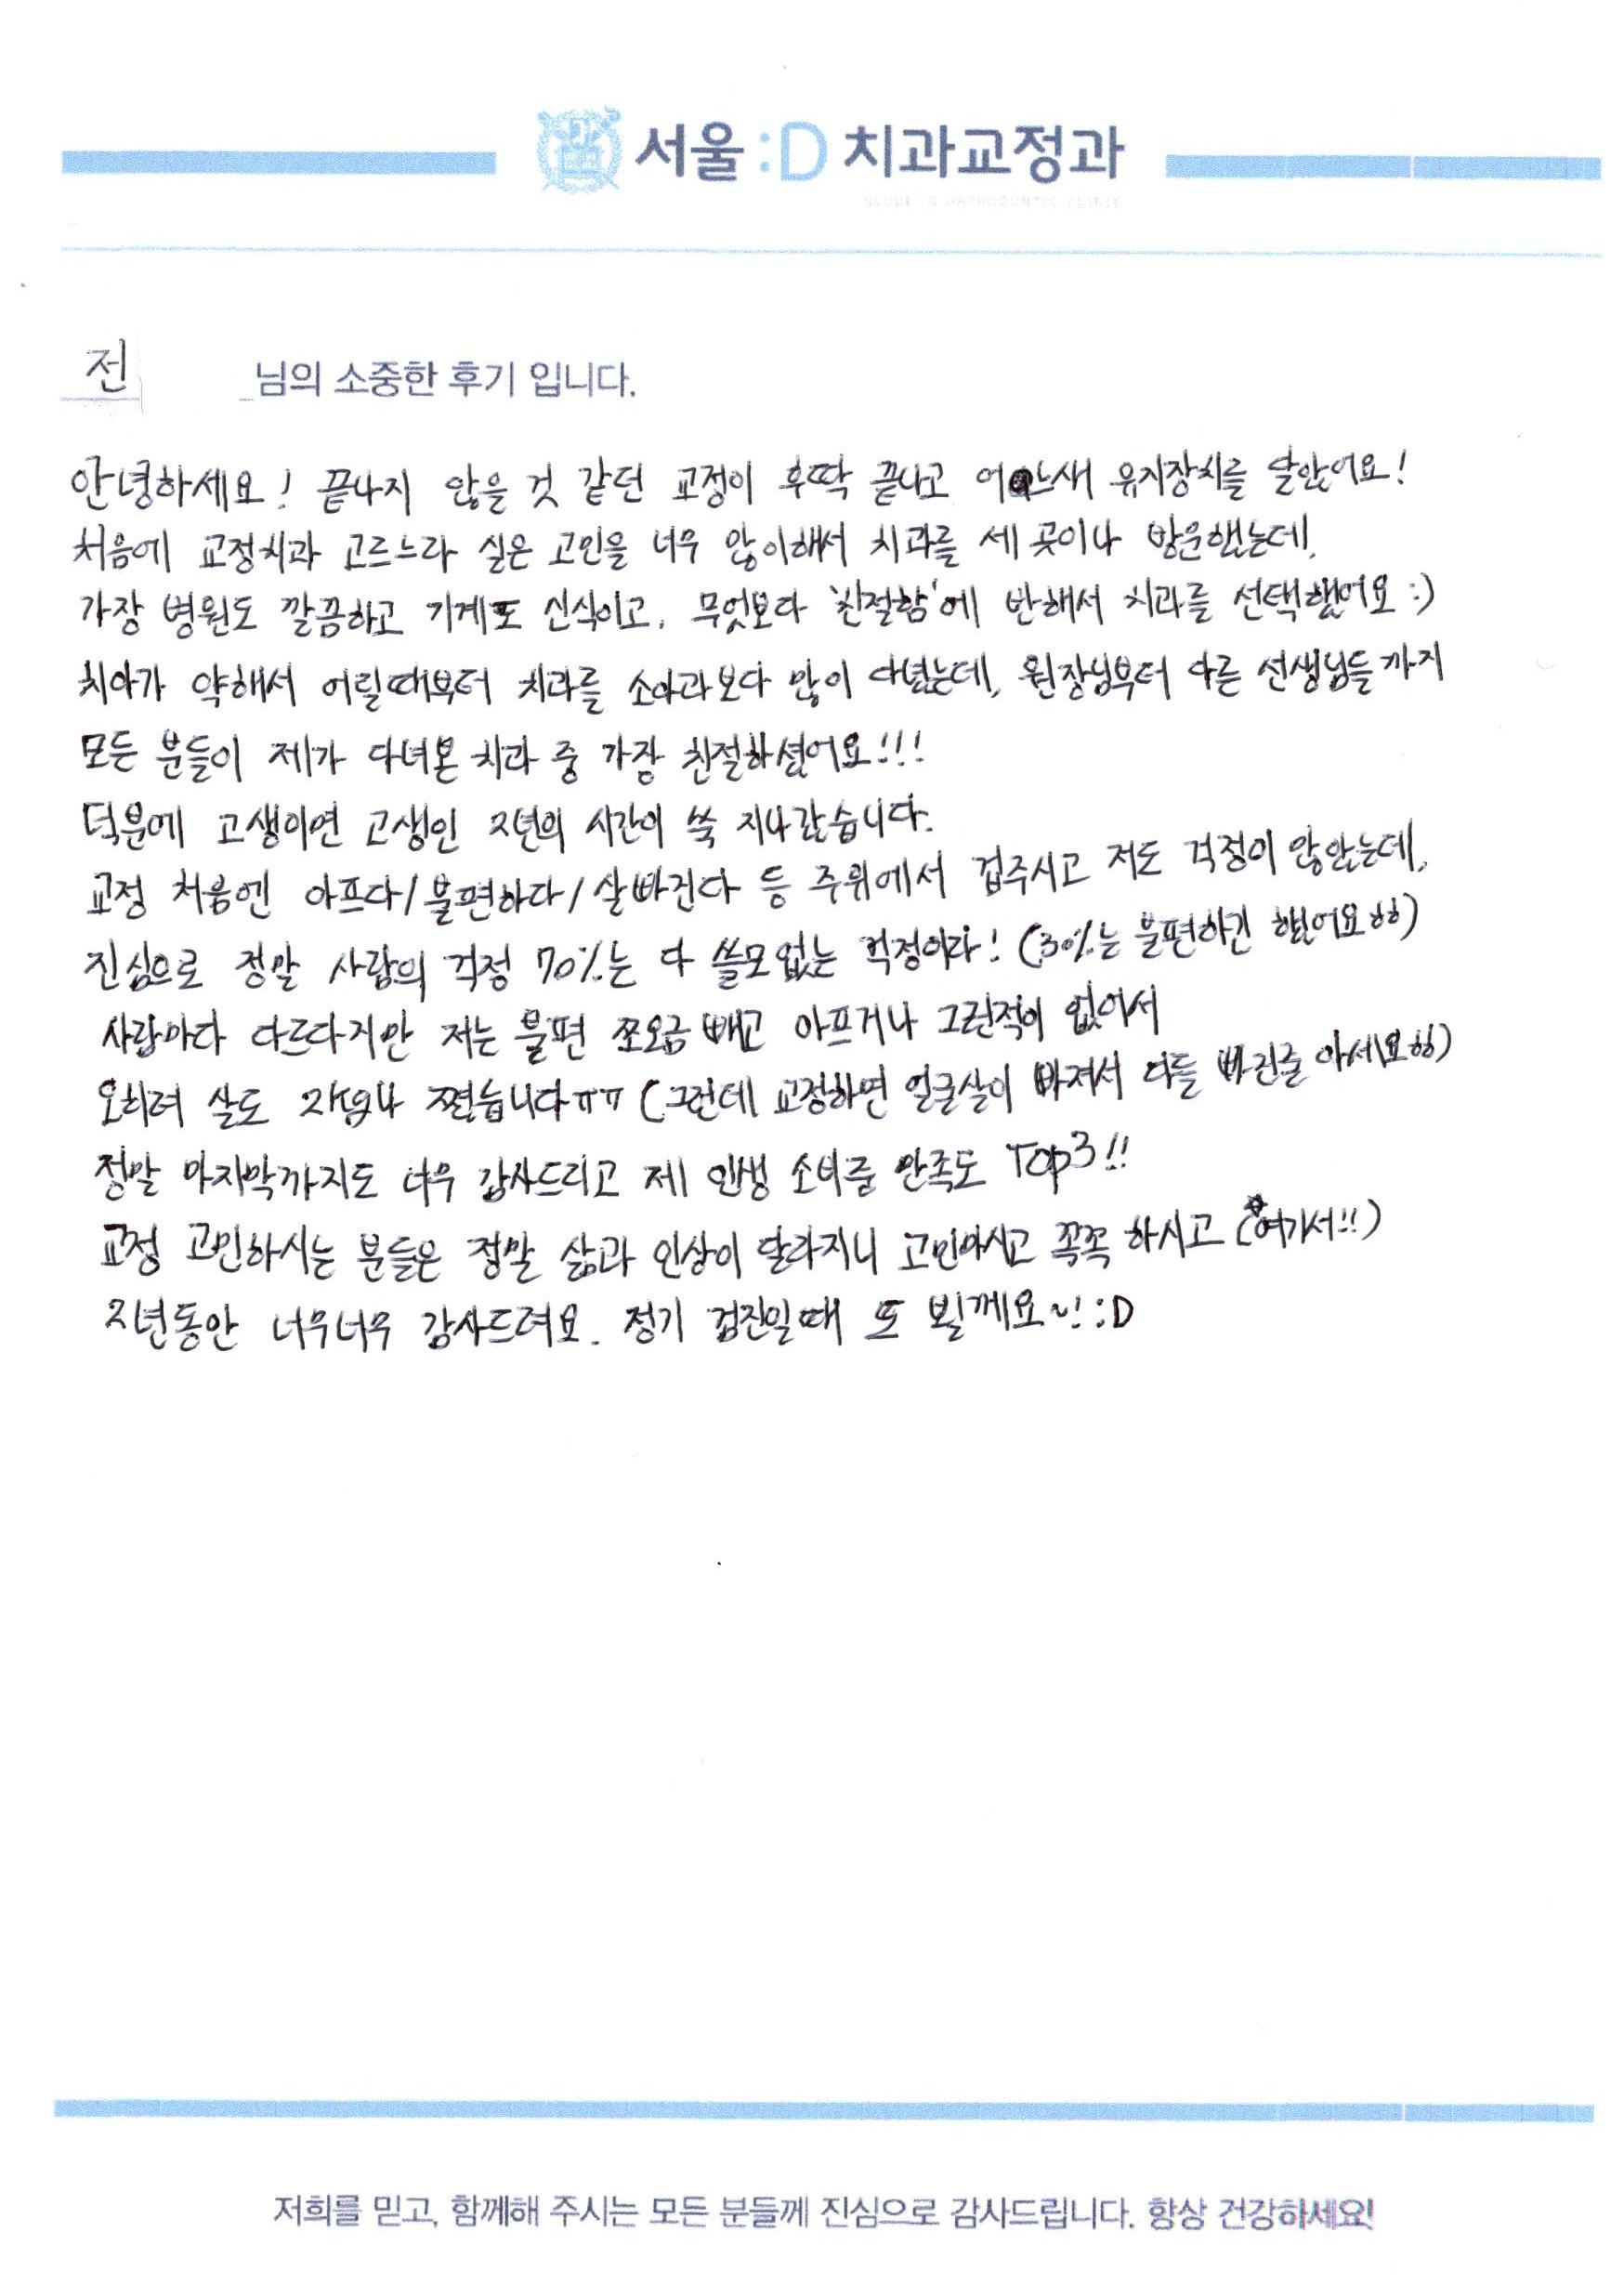 서울:D 치과교정과
SEOUL :D ORTHODONTIC CLINIC
전 님의 소중한 후기 입니다.
안녕하세요! 끝나지 않을 것 같던 교정이 후딱 끝나고 어느새 유지장치를 달았어요!
처음에 교정치과 고르느라 실은 고민을 너무 많이해서 치과를 세 곳이나 방문했는데,
가장 병원도 깔끔하고 기계도 신식이고, 무엇보다 '친절함'에 반해서 치과를 선택했어요 :)
치아가 약해서 어릴때부터 치과를 소아과보다 많이 다녔는데, 원장님부터 다른 선생님들까지
모든 분들이 제가 다녀본 치과 중 가장 친절하셨어요!!!
덕분에 고생이면 고생인 2년의 시간이 쑥 지나갔습니다.
교정 처음엔 아프다/불편하다/살빠진다 등 주위에서 겁주시고 저도 걱정이 많았는데,
진심으로 정말 사람의 걱정 70%는 다 쓸모없는 걱정이다! (30%는 불편하긴 했어요ㅎㅎ)
사람마다 다르다지만 저는 불편 쪼오금 빼고 아프거나 그런적이 없어서
오히려 살도 2kg나 쪘습니다ㅠㅠ (그런데 교정하면 얼굴살이 빠져서 다들 빠진줄 아세요ㅎㅎ)
정말 마지막까지도 너무 감사드리고 제 인생 소비중 만족도 Top3!!
교정 고민하시는 분들은 정말 삶과 인상이 달라지니 고민마시고 꼭꼭 하시고 (여기서!!)
2년동안 너무너무 감사드려요. 정기 검진일때 또 뵐께요~! :D
저희를 믿고, 함께해 주시는 모든 분들께 진심으로 감사드립니다. 항상 건강하세요!